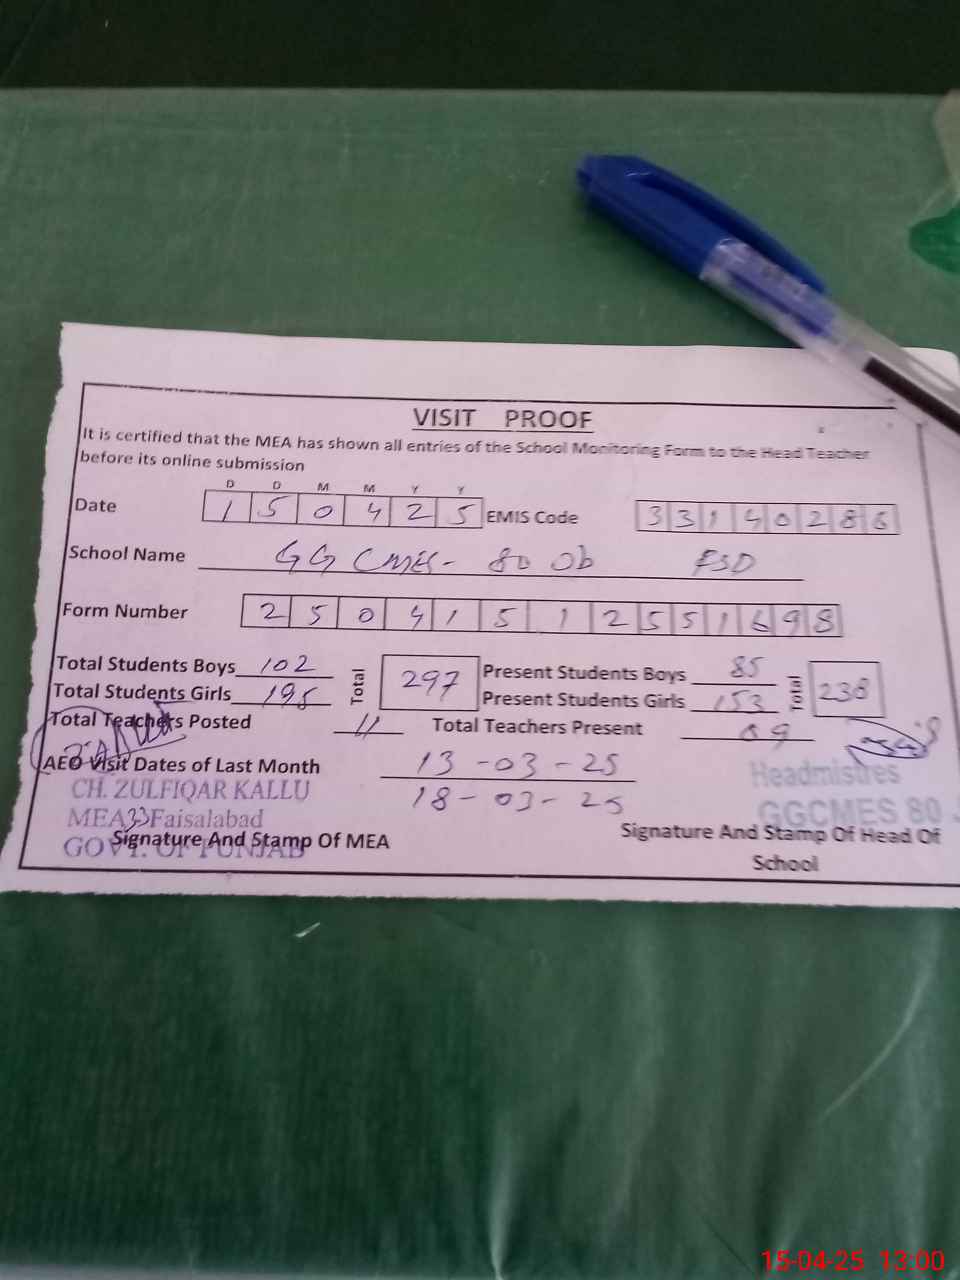 VISIT PROOF
It is certified that the MEA has shown all entries of the School Monitoring Form to the Head Teacher
before its online submission
D D M M Y Y
Date 1 5 0 4 2 5 EMIS Code 3 3 1 4 0 2 8 6
School Name GGCMES- 80 Jb FSD
Form Number 2 5 0 4 1 5 1 2 5 5 1 6 9 8
Total Students Boys 102 Total 297 Present Students Boys 85 Total 238
Total Students Girls 195 Present Students Girls 153
Total Teachers Posted 11 Total Teachers Present 09
AEO Visit Dates of Last Month 13-03-25
18-03-25
CH. ZULFIQAR KALLU
MEA 33 Faisalabad
GOVT. OF PUNJAB
Signature And Stamp Of MEA
Headmistres
GGCMES 80
Signature And Stamp Of Head Of
School
15-04-25 13:00